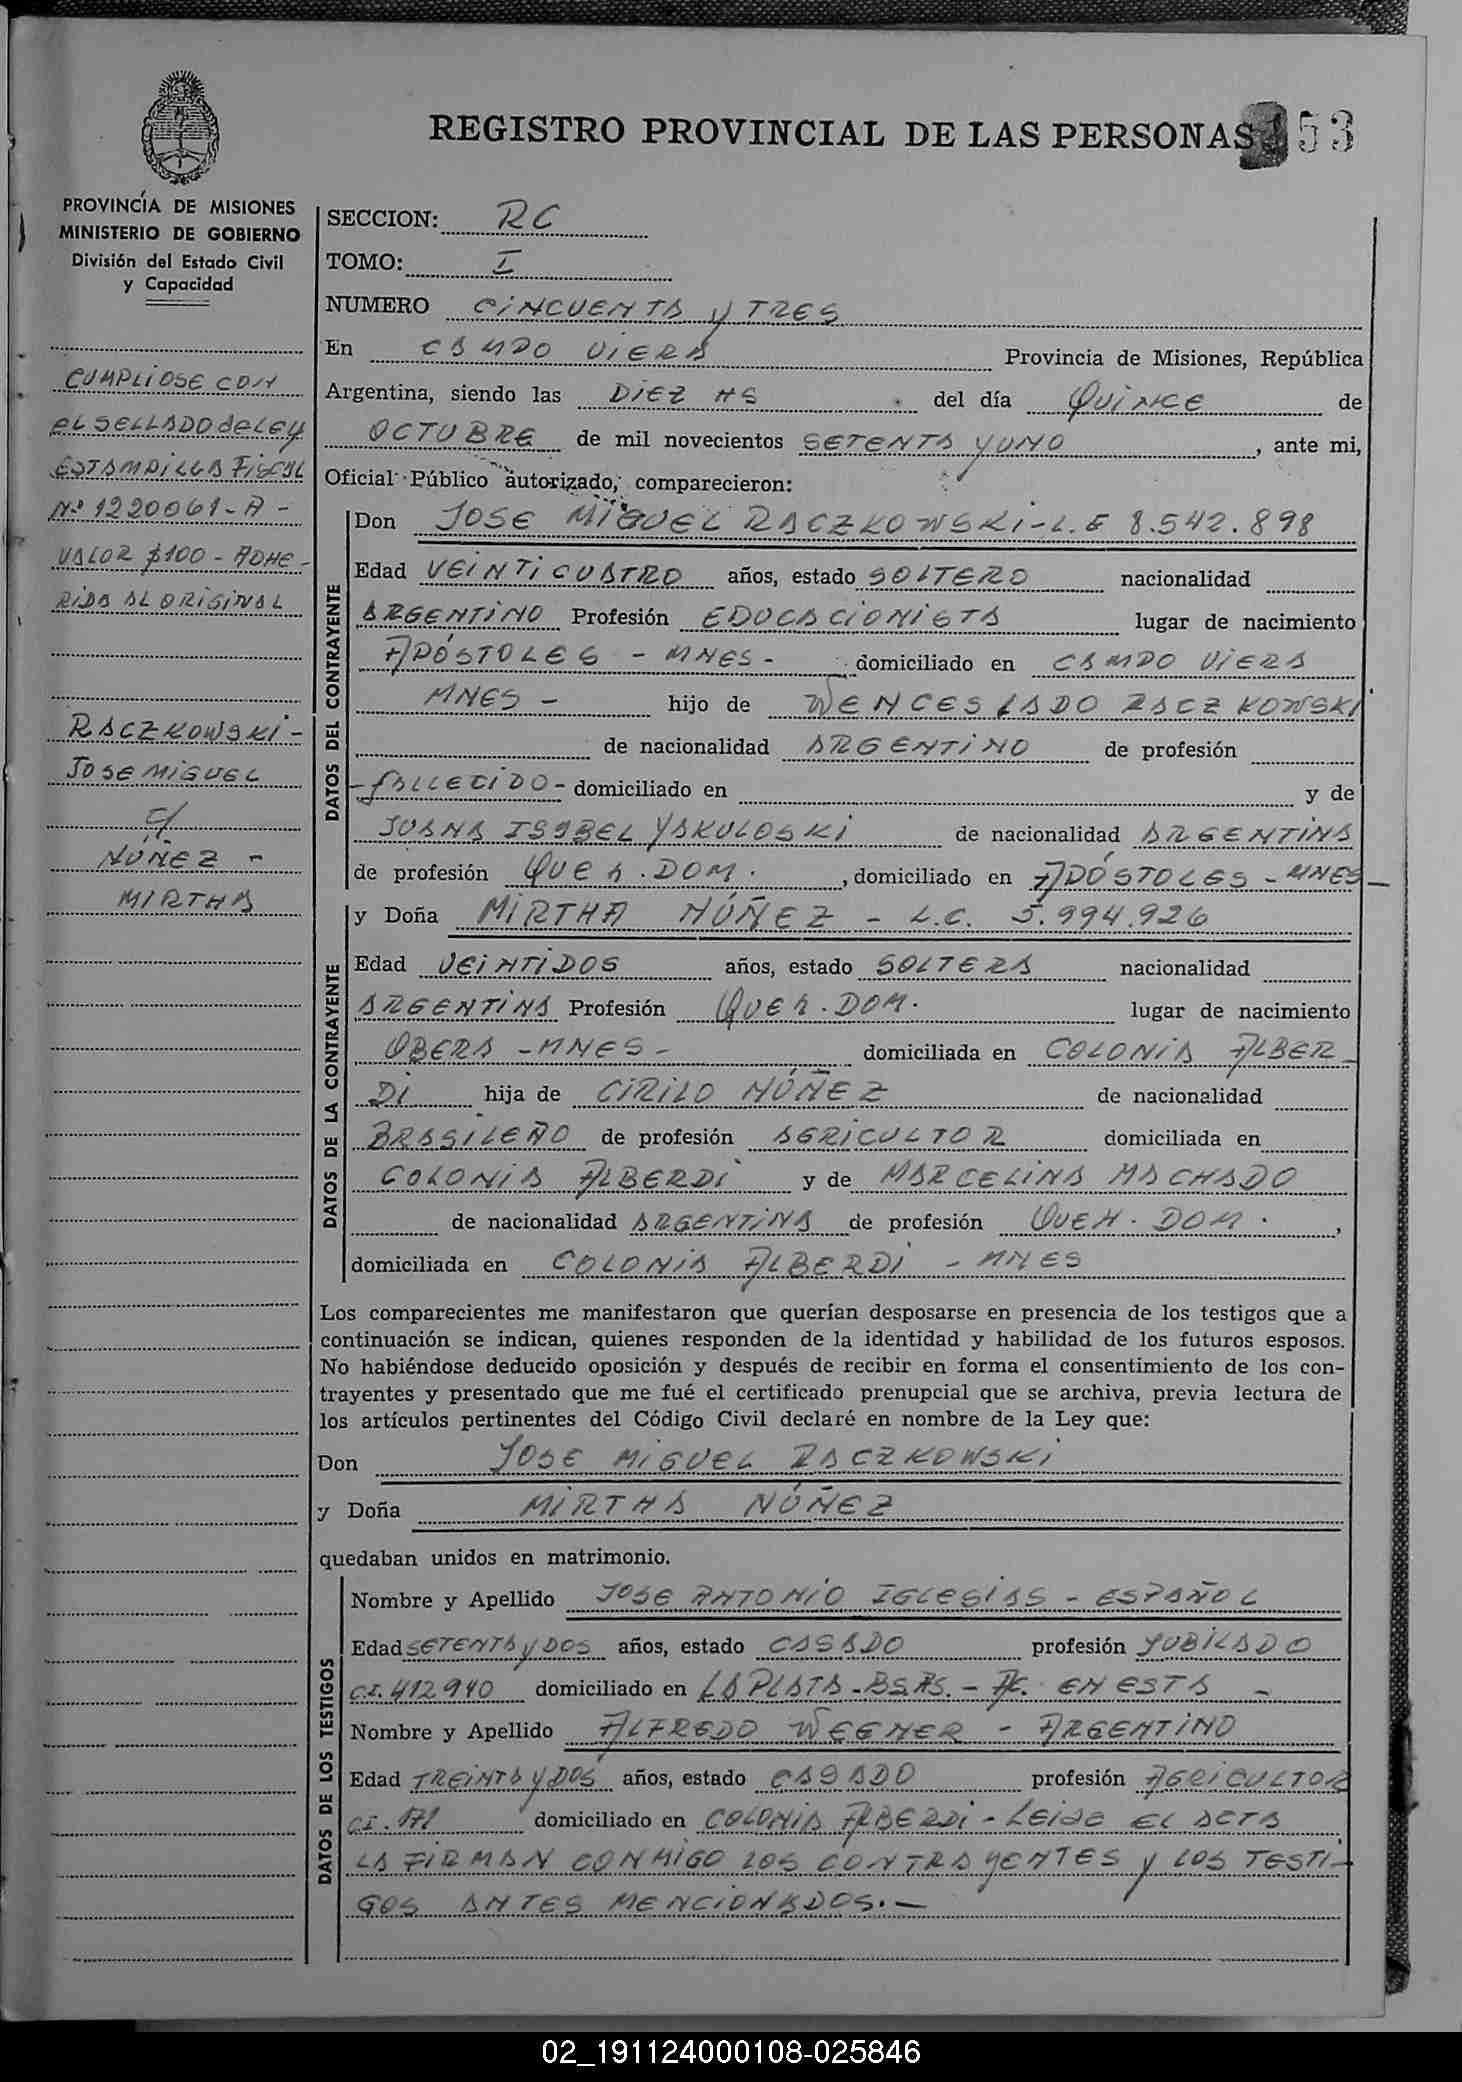 REGISTRO PROVINCIAL DE LAS PERSONAS 53
PROVINCÍA DE MISIONES
MINISTERIO DE GOBIERNO
División del Estado Civil
y Capacidad
CUMPLIOSE CON
EL SELLADO de LEY
ESTAMPILLA FISCAL
Nº 1220061-A-
VALOR $100 - ADHE-
RIDA AL ORIGINAL
RACZKOWSKI-
JOSE MIGUEL
c/
NÚÑEZ -
MIRTHA
SECCION: RC
TOMO: I
NUMERO CINCUENTA y TRES
En CAMPO VIERA Provincia de Misiones, República
Argentina, siendo las DIEZ HS del día QUINCE de
OCTUBRE de mil novecientos SETENTA Y UNO, ante mi,
Oficial Público autorizado, comparecieron:
DATOS DEL CONTRAYENTE
Don JOSE MIGUEL RACZKOWSKI-L.E 8.542.898
Edad VEINTICUATRO años, estado SOLTERO nacionalidad
ARGENTINO Profesión EDUCACIONISTA lugar de nacimiento
APÓSTOLES - MNES- domiciliado en CAMPO VIERA
MNES - hijo de WENCESLADO RACZKOWSKI
de nacionalidad ARGENTINO de profesión
-FALLECIDO- domiciliado en y de
JUANA ISABEL YAKULOSKI de nacionalidad ARGENTINA
de profesión QUEH. DOM., domiciliado en APÓSTOLES - MNES-
DATOS DE LA CONTRAYENTE
y Doña MIRTHA NÚÑEZ - L.C. 5.994.926
Edad VEINTIDOS años, estado SOLTERA nacionalidad
ARGENTINA Profesión QUEH. DOM. lugar de nacimiento
OBERA - MNES- domiciliada en COLONIA ALBER-
DI hija de CIRILO NÚÑEZ de nacionalidad
BRASILEÑO de profesión AGRICULTOR domiciliada en
COLONIA ALBERDI y de MARCELINA MACHADO
de nacionalidad ARGENTINA de profesión QUEH. DOM.,
domiciliada en COLONIA ALBERDI - MNES
Los comparecientes me manifestaron que querían desposarse en presencia de los testigos que a
continuación se indican, quienes responden de la identidad y habilidad de los futuros esposos.
No habiéndose deducido oposición y después de recibir en forma el consentimiento de los con-
trayentes y presentado que me fué el certificado prenupcial que se archiva, previa lectura de
los artículos pertinentes del Código Civil declaré en nombre de la Ley que:
Don JOSE MIGUEL RACZKOWSKI
y Doña MIRTHA NÚÑEZ
quedaban unidos en matrimonio.
DATOS DE LOS TESTIGOS
Nombre y Apellido JOSE ANTONIO IGLESIAS - ESPAÑOL
Edad SETENTA y DOS años, estado CASADO profesión JUBILADO
C.I. 412940 domiciliado en LA PLATA - BS.AS. - AC. EN ESTA -
Nombre y Apellido ALFREDO WEGNER - ARGENTINO
Edad TREINTA y DOS años, estado CASADO profesión AGRICULTOR
C.I. domiciliado en COLONIA ALBERDI - LEIDA EL ACTA
LA FIRMAN CONMIGO LOS CONTRAYENTES y LOS TESTI-
GOS ANTES MENCIONADOS.-
02_191124000108-025846